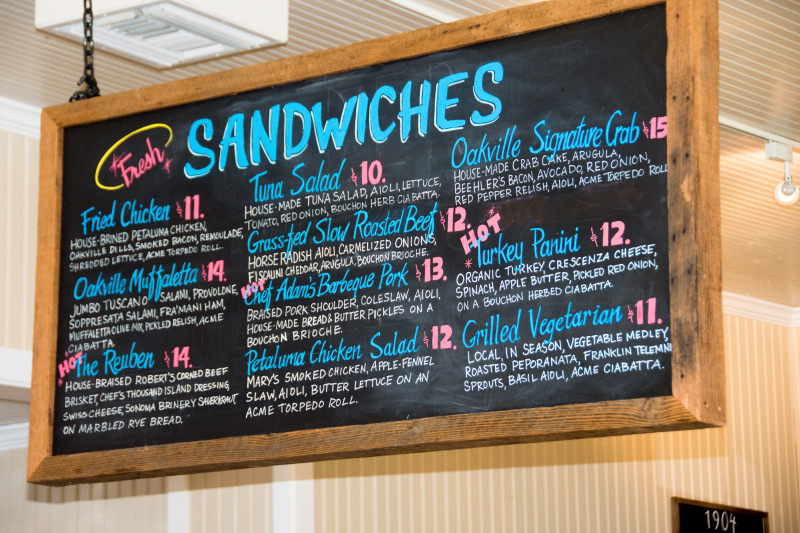 Fresh
SANDWICHES
Fried Chicken $11.
HOUSE-BRINED PETALUMA CHICKEN,
OAKVILLE DILLS, SMOKED BACON, REMOULADE,
SHREDDED LETTUCE, ACME TORPEDO ROLL.
Oakville Muffaletta $14.
JUMBO TUSCANO SALAMI, PROVOLONE,
SOPPRESATA SALAMI, FRA'MANI HAM,
MUFFALETTA OLIVE MIX, PICKLED RELISH, ACME
CIABATTA.
HOT
The Reuben $14.
HOUSE-BRAISED ROBERT'S CORNED BEEF
BRISKET, CHEF'S THOUSAND ISLAND DRESSING,
SWISS CHEESE, SONOMA BRINERY SAUERKRAUT,
ON MARBLED RYE BREAD.
Tuna Salad $10.
HOUSE-MADE TUNA SALAD, AIOLI, LETTUCE,
TOMATO, RED ONION, BOUCHON HERB CIABATTA.
Grass-fed Slow Roasted Beef $12.
HORSERADISH AIOLI, CARMELIZED ONIONS,
FISCALINI CHEDDAR, ARUGULA, BOUCHON BRIOCHE.
HOT
Chef Adam's Barbeque Pork $13.
BRAISED PORK SHOULDER, COLESLAW, AIOLI,
HOUSE-MADE BREAD & BUTTER PICKLES ON A
BOUCHON BRIOCHE.
Petaluma Chicken Salad $12.
MARY'S SMOKED CHICKEN, APPLE-FENNEL
SLAW, AIOLI, BUTTER LETTUCE ON AN
ACME TORPEDO ROLL.
Oakville Signature Crab $15
HOUSE-MADE CRAB CAKE, ARUGULA,
BEEHLER'S BACON, AVOCADO, RED ONION,
RED PEPPER RELISH, AIOLI, ACME TORPEDO ROLL
HOT
Turkey Panini $12.
ORGANIC TURKEY, CRESCENZA CHEESE,
SPINACH, APPLE BUTTER, PICKLED RED ONION,
ON A BOUCHON HERBED CIABATTA.
Grilled Vegetarian $11.
LOCAL, IN SEASON, VEGETABLE MEDLEY,
ROASTED PEPORANATA, FRANKLIN TELEMN
SPROUTS, BASIL AIOLI, ACME CIABATTA.
1904